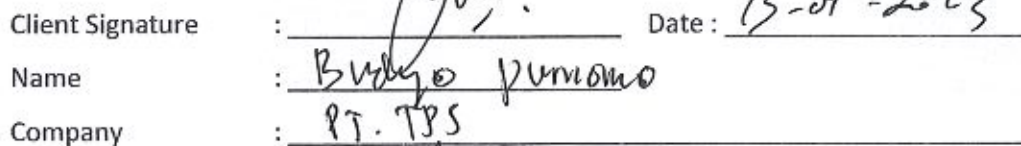 Client Signature : Date :
Name : Budyo Purnomo
Company : PT. TPS